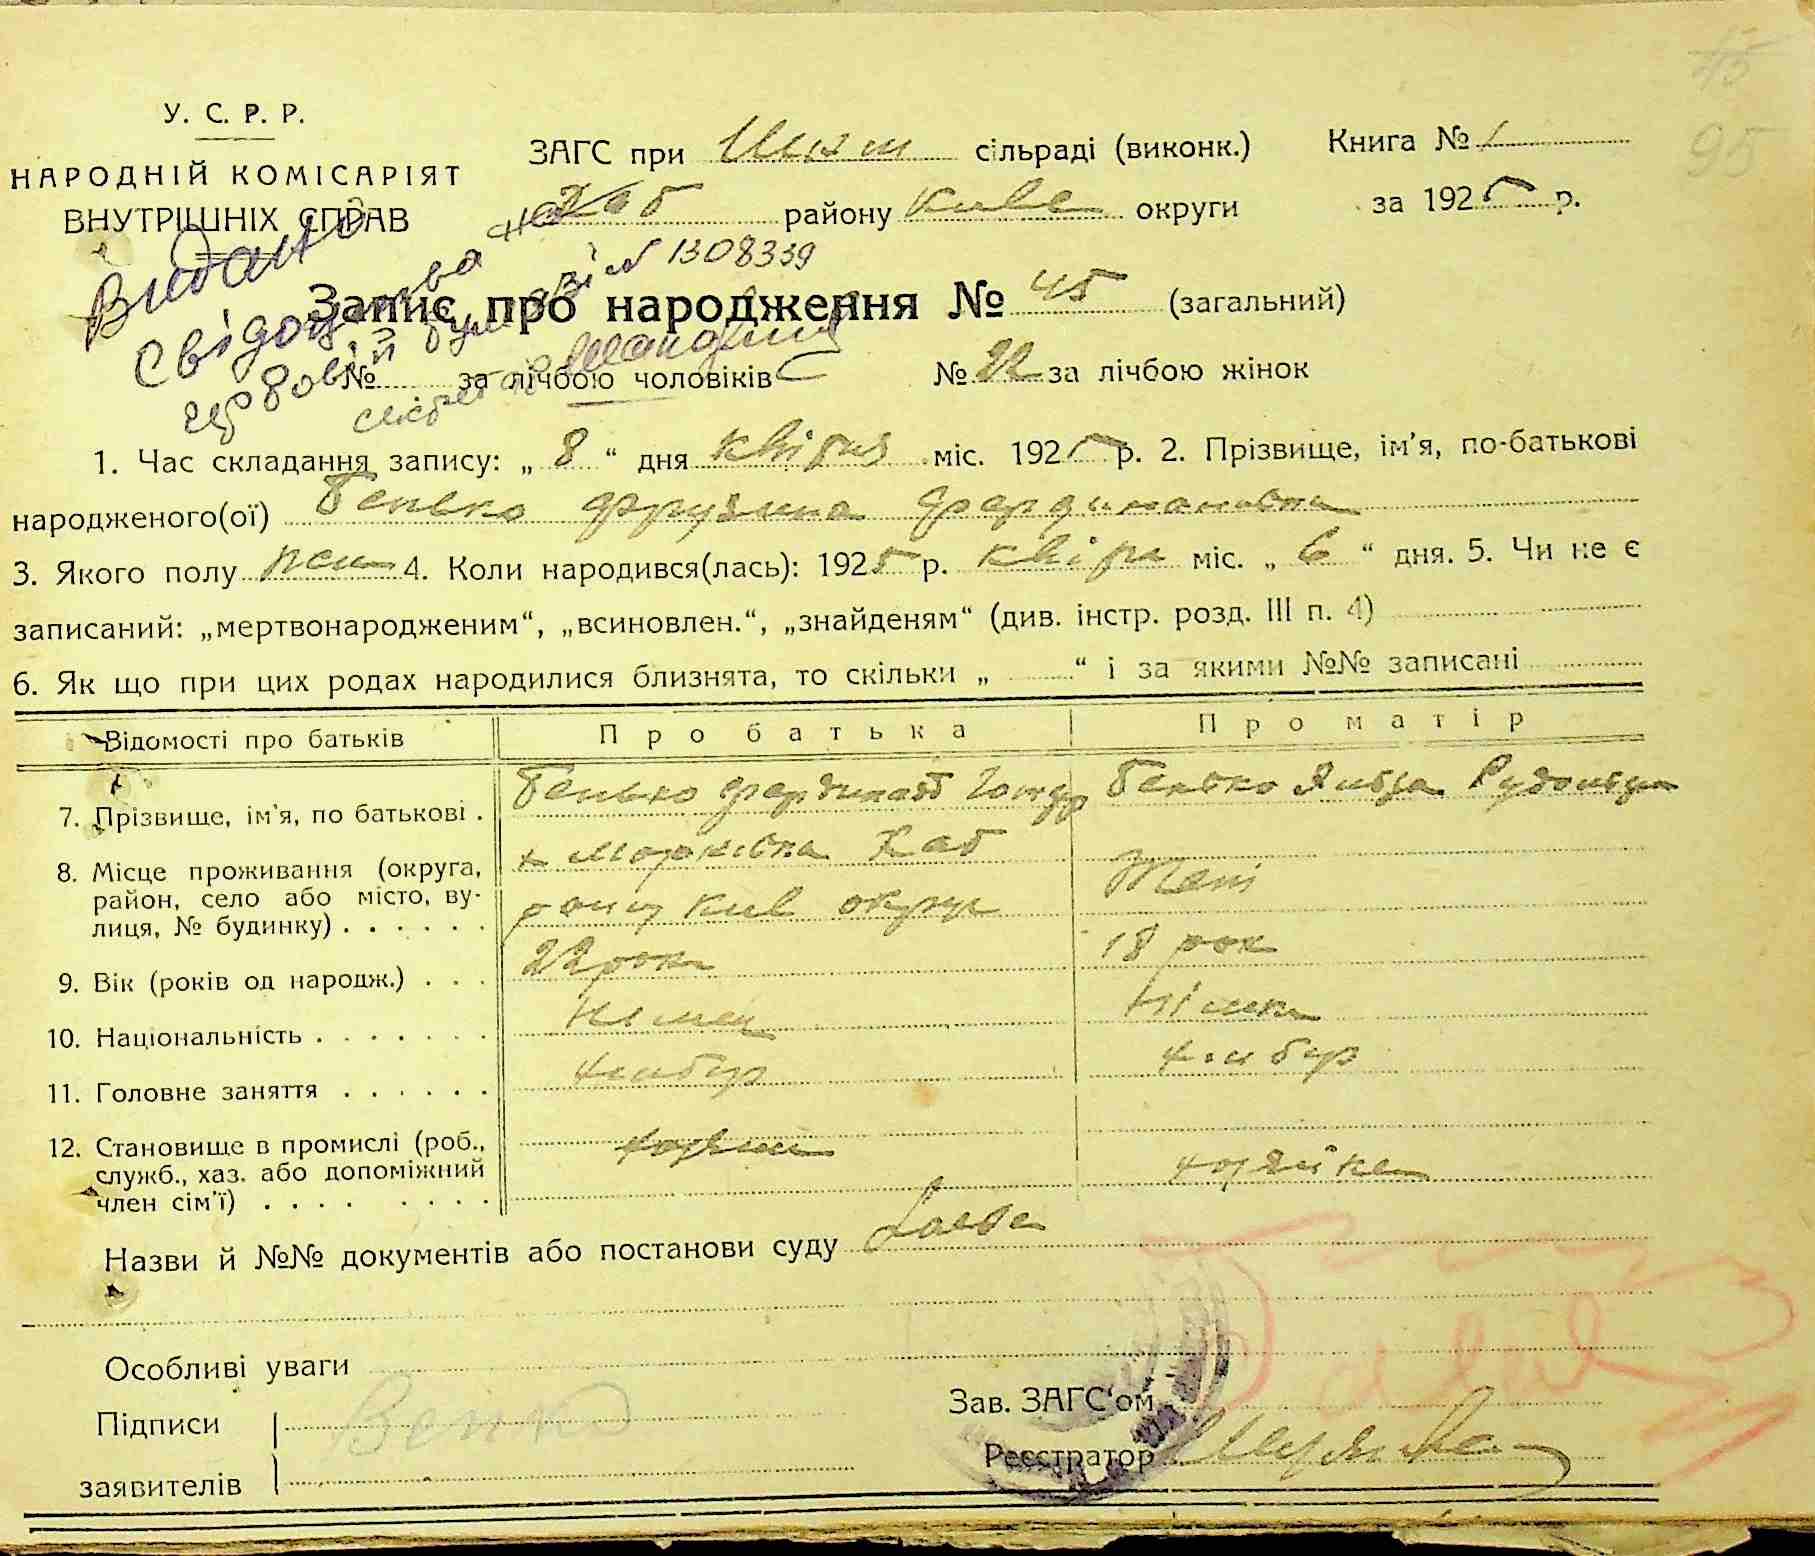 45
95
У. С. Р. Р.
НАРОДНІЙ КОМІСАРІЯТ
ВНУТРІШНІХ СПРАВ
ЗАГС при сільраді (виконк.) Книга № 1
району Київ округи за 1925 р.
Видано
Свідоцтва
№ 1308339
Запис про народження № 45 (загальний)
№ за лічбою чоловіків № 22 за лічбою жінок
1. Час складання запису: „ 8 “ дня квітня міс. 1925 р. 2. Прізвище, ім'я, по-батькові
народженого(ої) Бенько Фрузина Фердинановна
3. Якого полу жен 4. Коли народився(лась): 1925 р. міс. „ 6 “ дня. 5. Чи не є
записаний: „мертвонародженим“, „всиновлен.“, „знайденям“ (див. інстр. розд. III п. 4)
6. Як що при цих родах народилися близнята, то скільки „ “ і за якими №№ записані
Відомості про батьків Про батька Про матір
7. Прізвище, ім'я, по батькові . Бенько Бенько
8. Місце проживання (округа,
район, село або місто, ву-
лиця, № будинку) . . . . . .
х Марковка Хаб
Київ округи
Теж
9. Вік (років од народж.) . . . 22 рок 18 рок
10. Національність . . . . . . . німец німка
11. Головне заняття . . . . . . хлибор хлибор
12. Становище в промислі (роб.,
служб., хаз. або допоміжний
член сім'ї) . . . . . . . .
хозяин хозяйка
Назви й №№ документів або постанови суду
Особливі уваги
Підписи
заявителів
Венко
Зав. ЗАГС'ом
Реєстратор